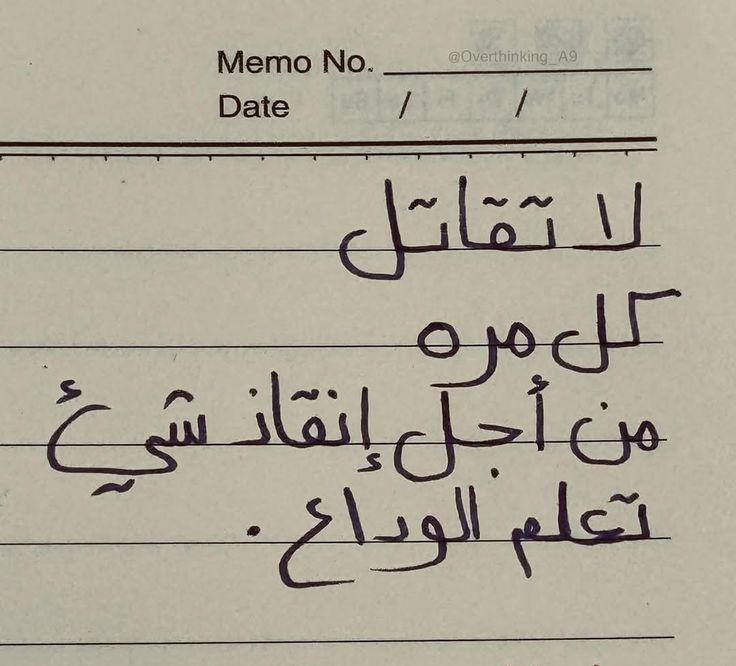 Memo No. @Overthinking_A9
Date / /
لا تقاتل
كل مره
من أجل إنقاذ شيئ
تعلم الوداع.